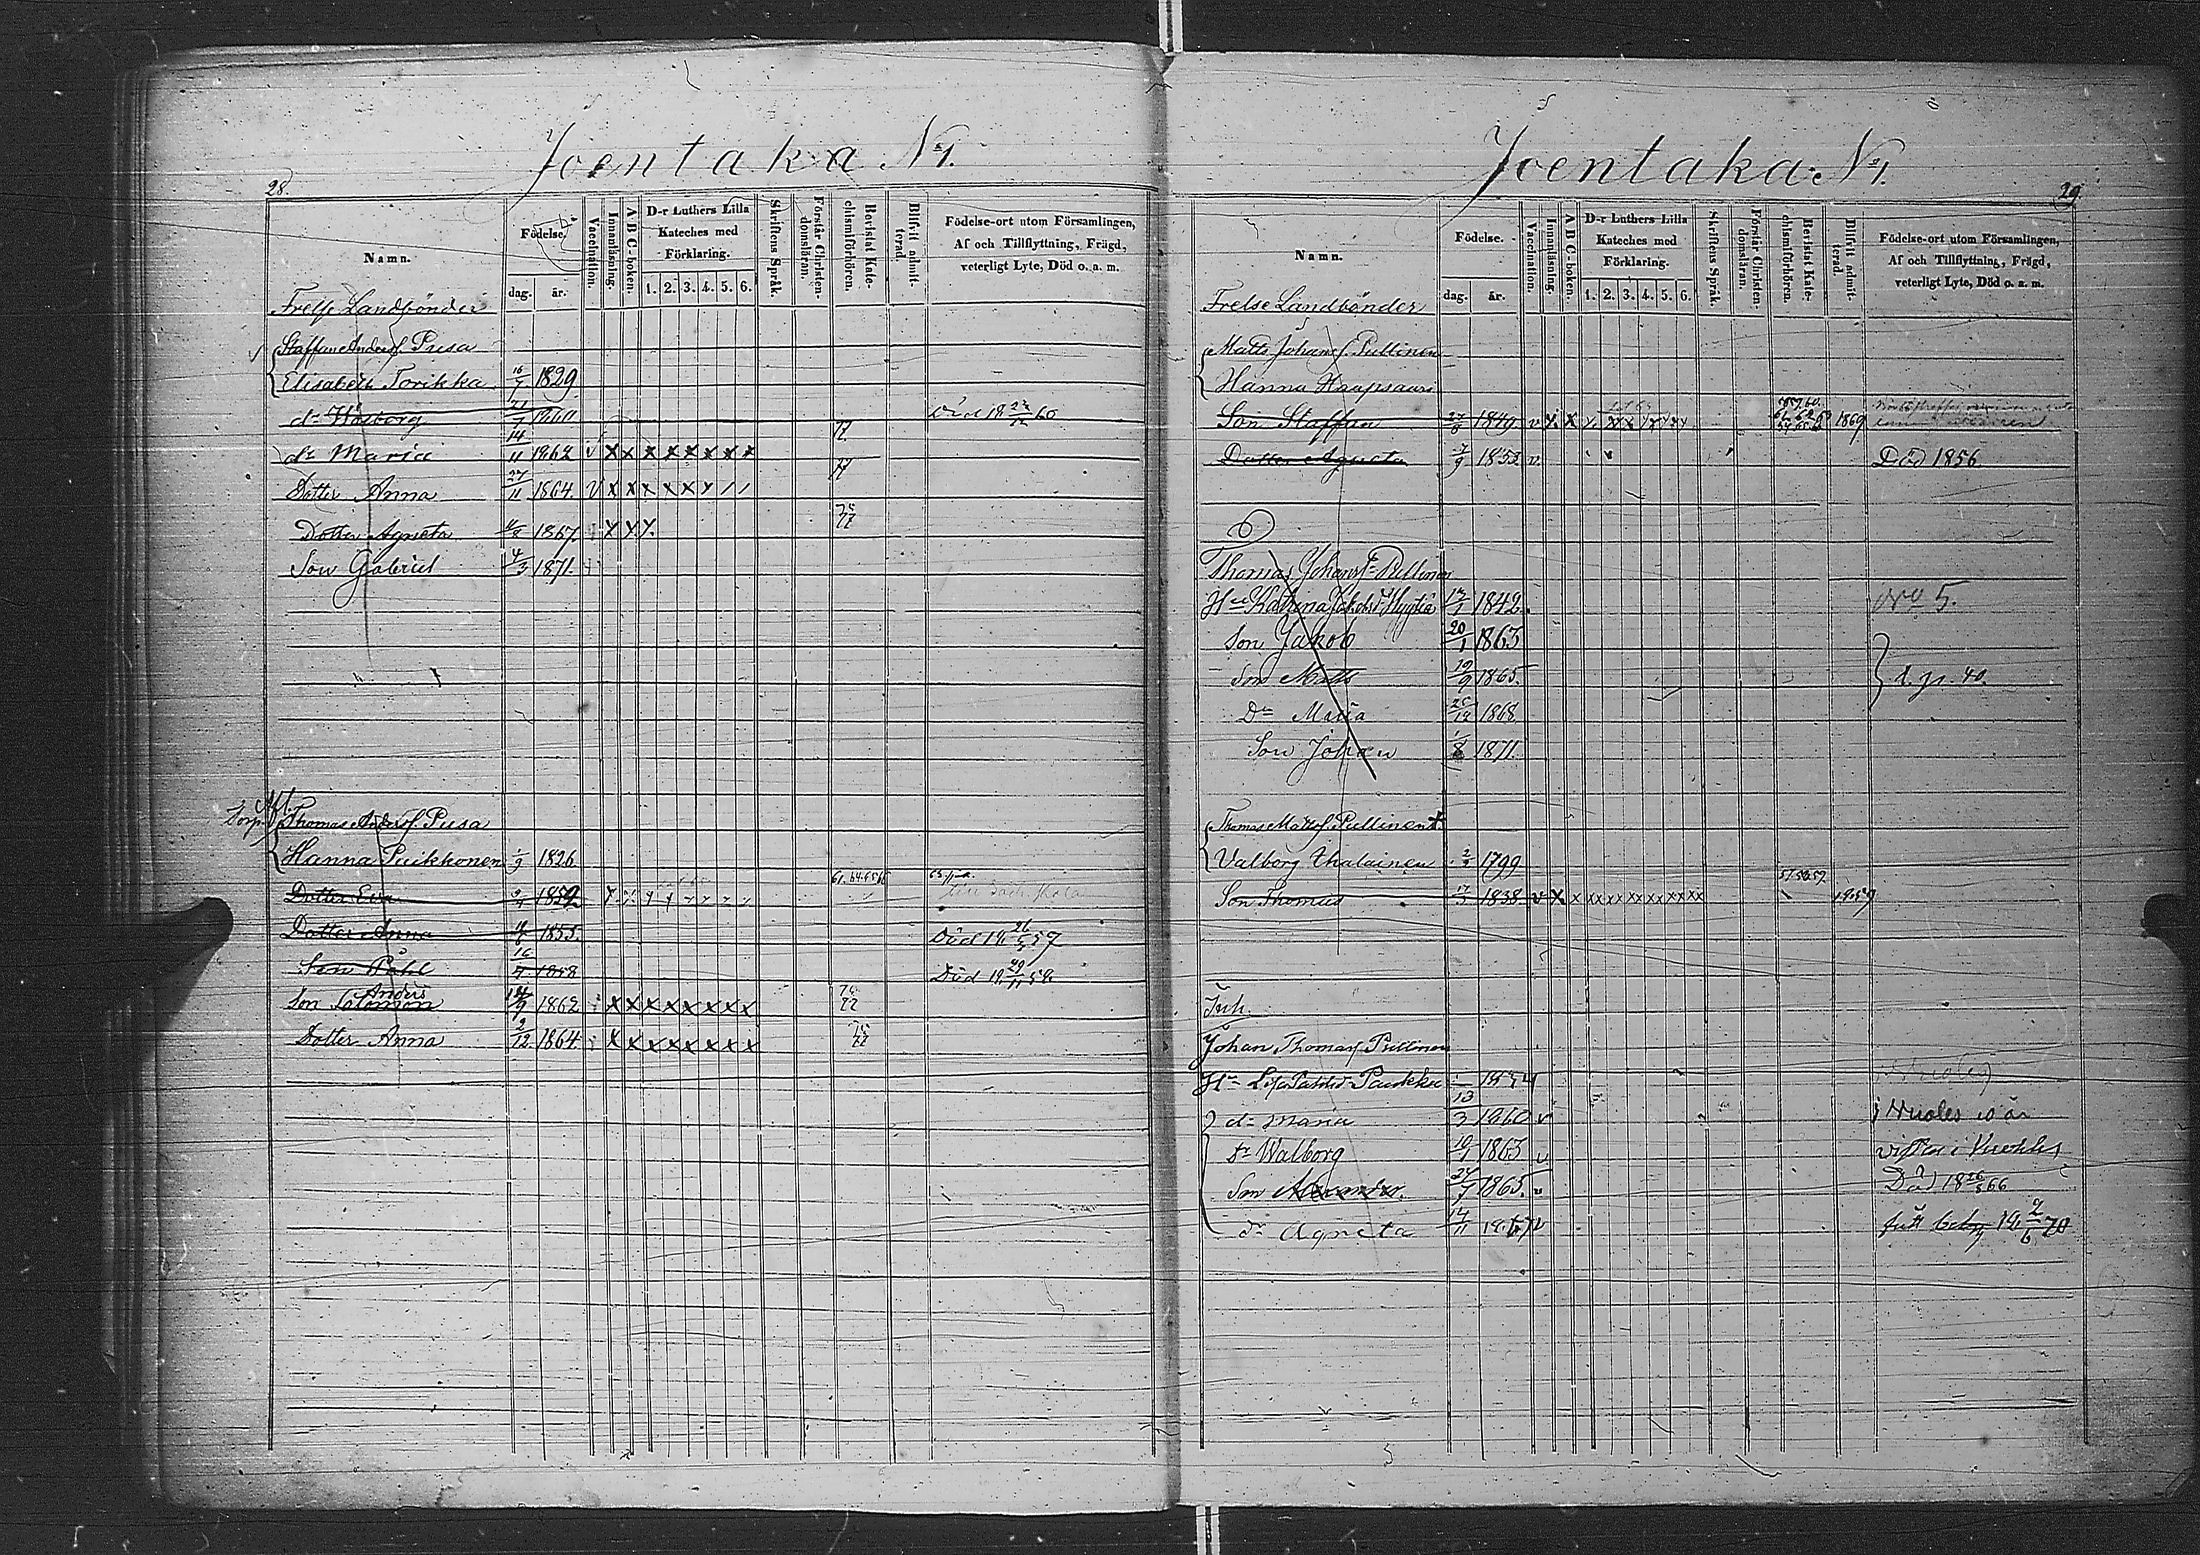 Joentaka No 1.
28
Namn.
Födelse.
dag.
år.
Vaccination.
Innanläsning.
A B C-boken.
D-r Luthers Lilla
Kateches med
Förklaring.
1. 2. 3. 4. 5. 6.
Skriftens Språk.
Förstår Christen-
domsläran.
Bevistat Kate-
chismiförhören.
Blifvit admit-
terad.
Födelse-ort utom Församlingen,
Af och Tillflyttning, Frägd,
veterligt Lyte, Död o. a. m.
Frelse Landbönder
Staffan Andersf Pusa
Elisabeth Torikka 16/7 1829
dr Walborg 21/7 1860 Död 18 60
dr Maria 14/11 1862 v x x x x x x x x 77
Dotter Anna 27/11 1864 v x x x x x x / / 77
Dotter Agneta 1867 x x x 75 77
Son Gabriel 4/3 1871
Torp.
Thomas Andersf Pusa
Hanna Puikkonen 1/9 1826
Dotter Eva 1852 61. 64. 65
Dotter Anna 1855 Död 18 26/5 57
Son Påhl 16/7 1858 Död 18 29/11 58
Anders
Son Salomon 9 1862 x x x x x x x x 77
Dotter Anna 2/12 1864 x x x x x x x x 77
Joentaka No 1.
29
Namn.
Födelse.
dag.
år.
Vaccination.
Innanläsning.
A B C-boken.
D-r Luthers Lilla
Kateches med
Förklaring.
1. 2. 3. 4. 5. 6.
Skriftens Språk.
Förstår Christen-
domsläran.
Bevistat Kate-
chismiförhören.
Blifvit admit-
terad.
Födelse-ort utom Församlingen,
Af och Tillflyttning, Frägd,
veterligt Lyte, Död o. a. m.
Frelse Landbönder
Matts Johansf Pullinen
Hanna Haapsaari
Son Staffan 1849 v x x 1869
Dotter Agneta 7/9 1853 v. Död 1856
Thomas Johansf Pullinen
Hu Katrina Jakobsd Hyytiä 1842 No 5.
Son Jakob 20/1 1863
Son Matts 19/9 1865. l. p. 40.
Dr Maria 12 1868
Son Johan 1/8 1871.
Thomas Mattsf Pullinen +
Valborg Ihalainen 1799
Son Thomas 17/3 1838 v x x x x x x x x x x 1859
Inh.
Johan Thomasf Pullinen
Hu Lisa Paukku
dr Maria 13/3 1860 v i Nuoles 10 år
dr Walborg 19/1 1863 v vistas i Kuohles
Son Alexander. 24/7 1865. v Död 18 66
dr Agneta 14/11 1867 v 18 2/6 70